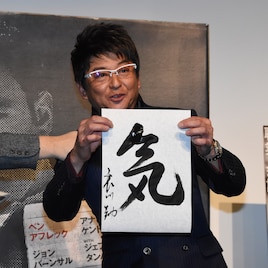 気
哀川翔
ベン
アフレック
ジョン
バーンサル
アナ
ケン
ジェフ
タン